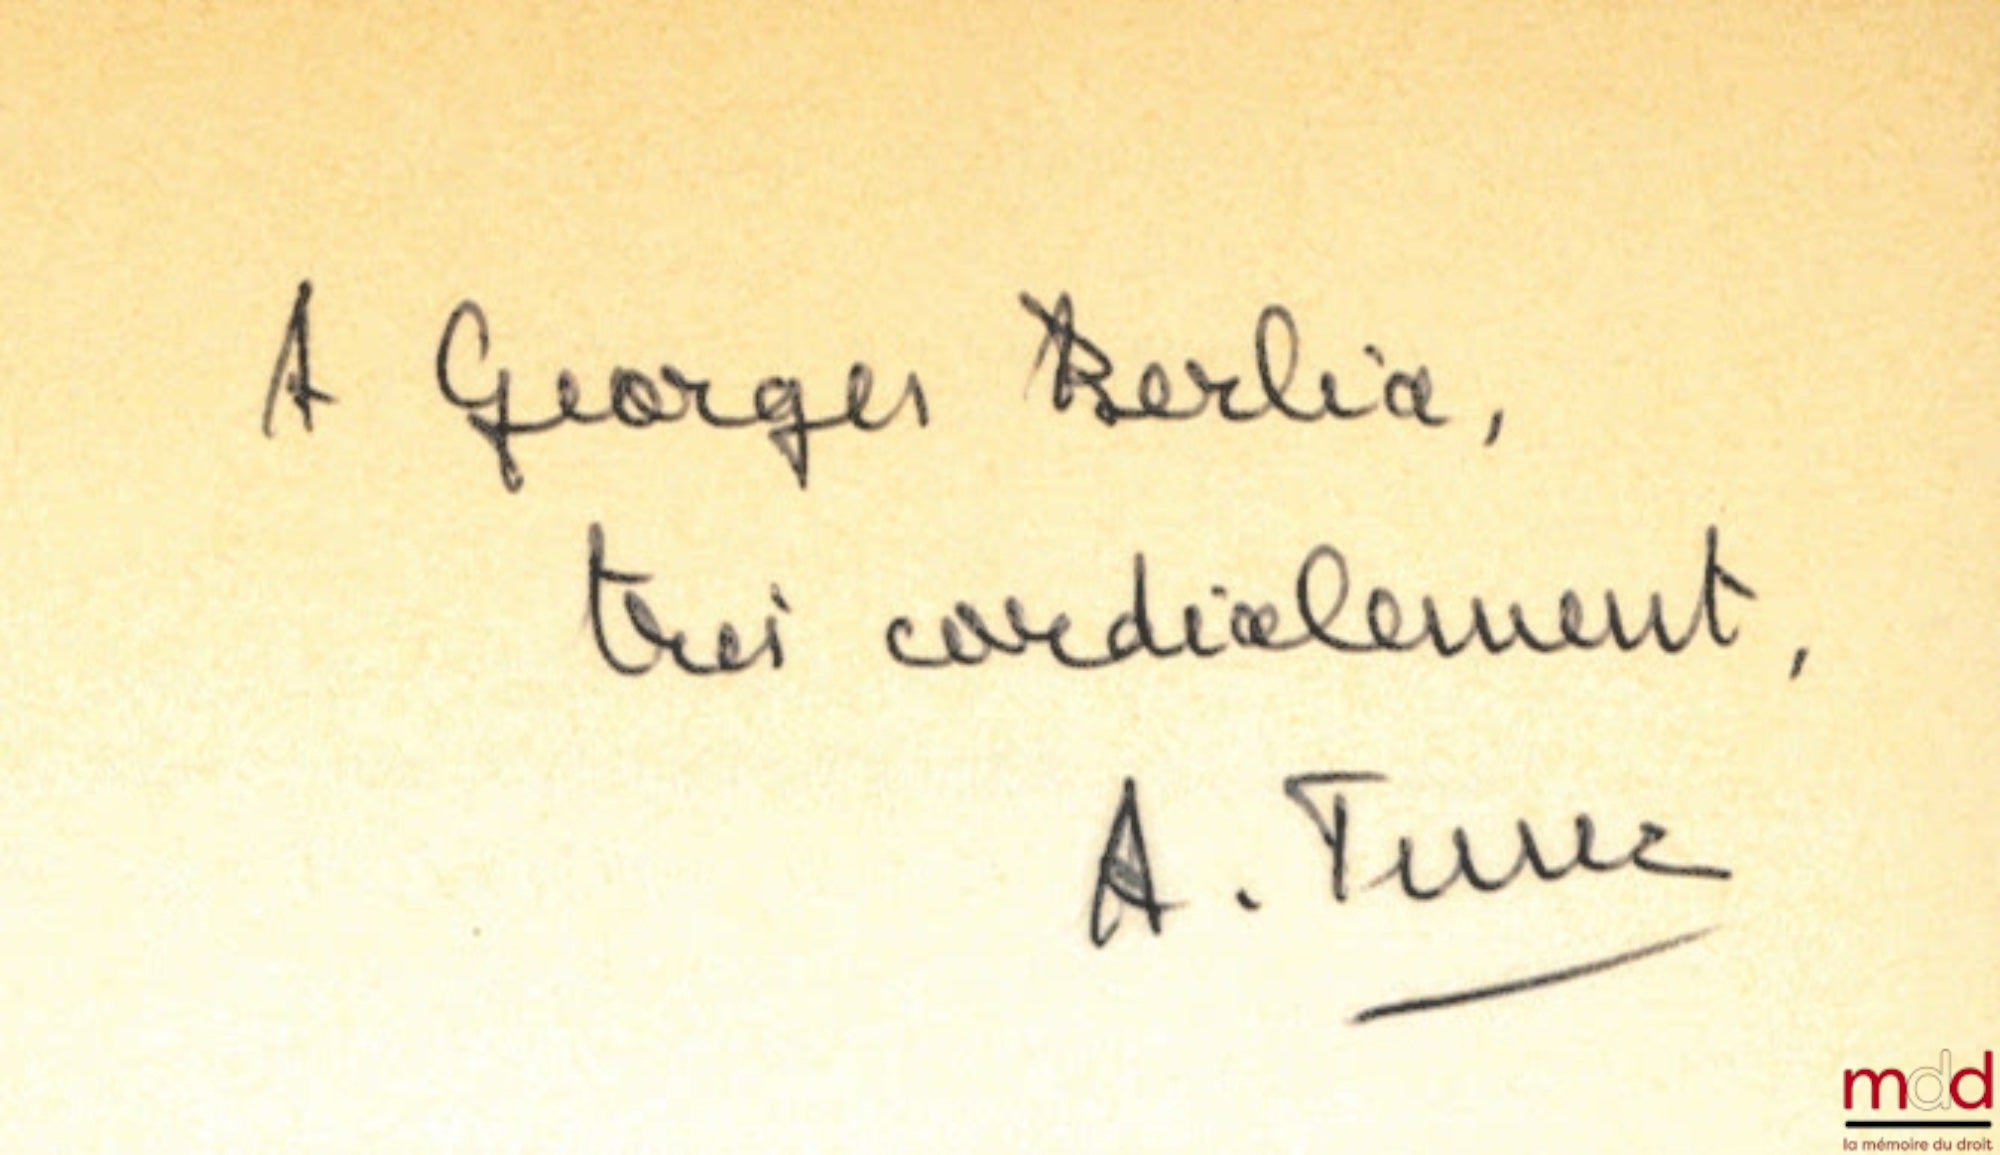 A Georges Berlia,
très cordialement,
A. Tunc
mdd
la mémoire du droit